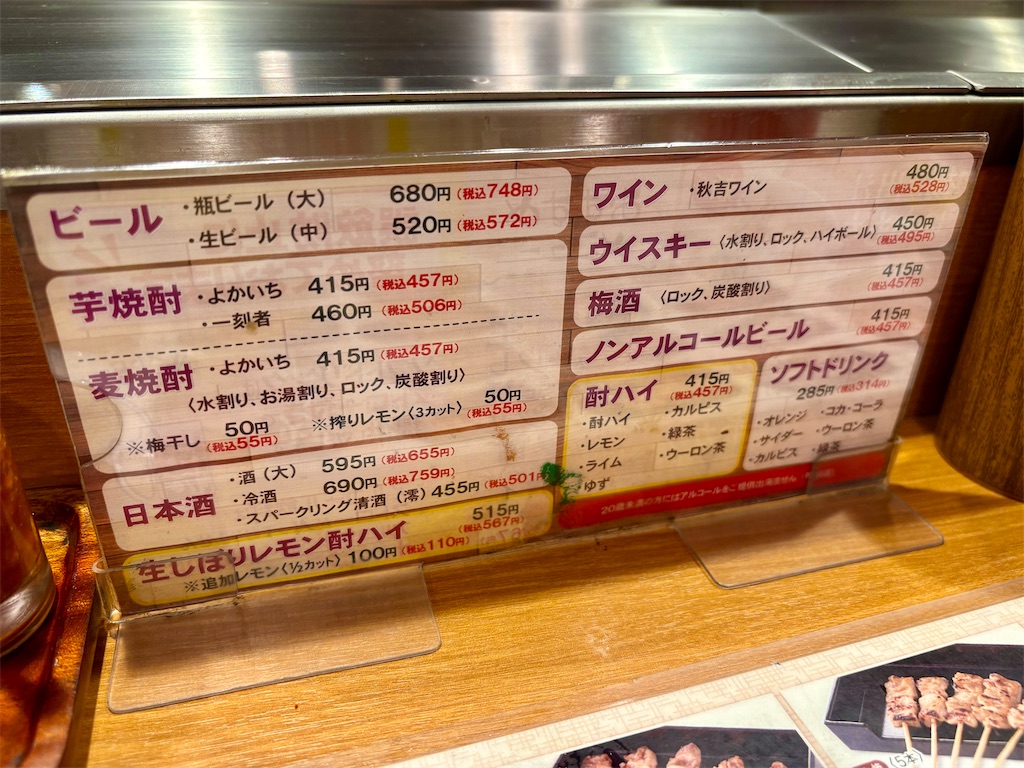 ビール ・瓶ビール（大） 680円（税込748円）
・生ビール（中） 520円（税込572円）
芋焼酎 ・よかいち 415円（税込457円）
・一刻者 460円（税込506円）
麦焼酎 ・よかいち 415円（税込457円）
〈水割り、お湯割り、ロック、炭酸割り〉
※梅干し 50円（税込55円） ※搾りレモン〈3カット〉 50円（税込55円）
日本酒 ・酒（大） 595円（税込655円）
・冷酒 690円（税込759円）
・スパークリング清酒（澪） 455円（税込501円）
生しぼりレモン酎ハイ 515円（税込567円）
※追加レモン〈½カット〉 100円（税込110円）
ワイン ・秋吉ワイン 480円（税込528円）
ウイスキー 〈水割り、ロック、ハイボール〉 450円（税込495円）
梅酒 〈ロック、炭酸割り〉 415円（税込457円）
ノンアルコールビール 415円（税込457円）
酎ハイ 415円（税込457円）
・酎ハイ ・カルピス
・レモン ・緑茶
・ライム ・ウーロン茶
・ゆず
ソフトドリンク
285円（税込314円）
・オレンジ ・コカ・コーラ
・サイダー ・ウーロン茶
・カルピス ・緑茶
20歳未満の方にはアルコールをご提供出来ません
（5本）